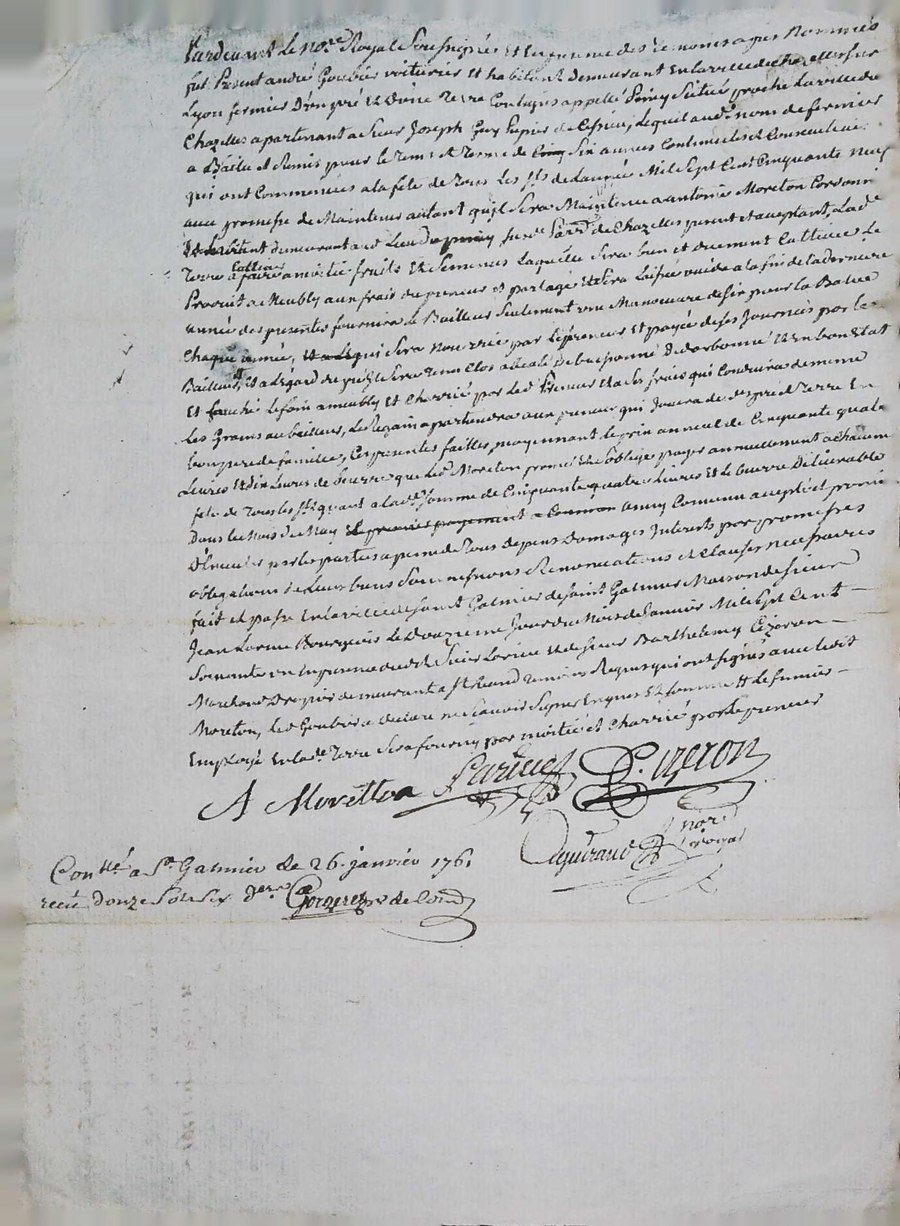 Pardevant Le no.re Royal Soussignés Et En presence des Temoins apres Nommés
fut Present andré Goubier voiturier Et habitant Demeurant En la ville de Chazelles sur
Lyon fermier D'un pré Et D'une Terre Contigus appellé Situés proche La ville de
Chazelles apartenant a Sieur Joseph Guy Lequel aud. nom de fermier
a Baille et Remis pour le Tems Et Terme de Cinq Six années Continuelles Et Consecutives
qui ont Commencées a la fete de Tous les Sts de L'année Mil Sept Cent Cinquante Neuf
avec promesse de Maintenir autant qu'il Sera Maintenu a antoine Moreton Cordonnier
Et habitant demeurant au Lieu Parr.sse de Chazelles present et acceptant, Lad.e
Terre a faire cultiver a moitié fruits Et Semences Laquelle Sera bien et duement Cultivée Le
Produit ameubly aux frais du preneur et partagé Et Sera Laissée vuide a la fin de la derniere
année des presentes fournira Le Bailleur Seulement une Manoeuvre pour la Batue
Chaque année, Et a Le qui Sera Nourrie par Le preneur Et payée de Ses Journées par le
Bailleur, Et a L'égard du pré Il Sera Tenu Clos Et En bon Etat
Et fauché Le foin ameubly Et Charrié par Led. Preneur Et a Ses frais qui Conduira de meme
Les Grains au bailleur, Le Regain apartiendra aux preneur qui Jouira de Ses pré Et Terre En
bon pere de famille, Les presentes faittes moyennant le prix annuel de Cinquante quatre
Livres Et dix Livres de beurre que Led. Moreton promet Et s'oblige payer annuellement a Chacune
fete de Tous les Sts quant a lad.e Somme de Cinquante quatre Livres Et le beurre Delivrable
Dans le Mois de May Et premier payement a Commen ainsy Convenu accepté et promis
D'Executer par les parties a peine de Tous depens Domages Interets par promesses
obligations de Leurs biens Soumissions Renonciations Et Clauses Necessaires
fait et passé En la ville de Saint Galmier Maison de Sieur
Jean Bourgeois Le Douzieme Jour du Mois de Janvier Mil Sept Cent
Soixante un En presence dud. Sieur Et de Sieur Barthelemy Cizeron
Marchand Drapier demeurant a St Temoins Requis qui ont Signés avec Ledit
Moreton, Led. Goubier a declaré ne Scavoir Signer Enquis Et Sommé Le fumier
Employé En lad.e Terre Sera fourny par moitié et Charrié par le preneur
A Moretton B. Cizeron
no.re Royal
Con.llé a St Galmier le 26 janvier 1761
receu douze Sols Six d.ers